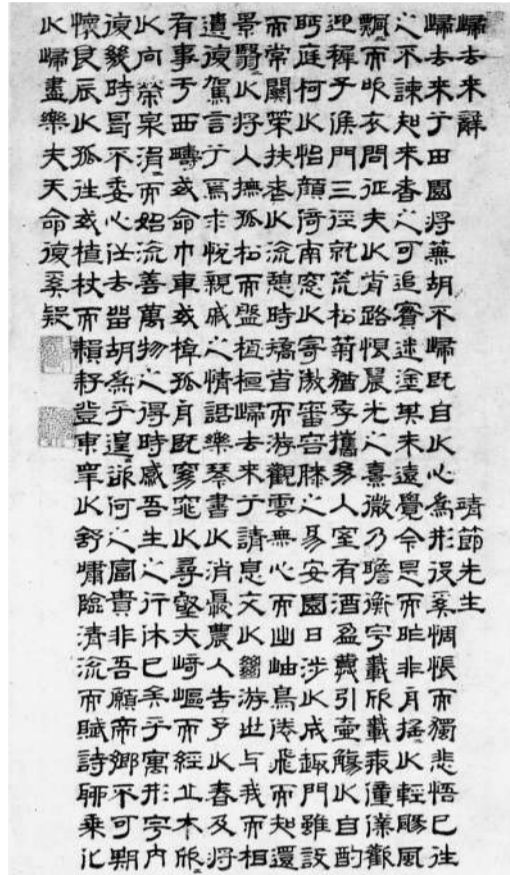 歸去來辭 靖節先生
歸去來兮田園將蕪胡不歸既自以心為形役奚惆悵而獨悲悟已往
之不諫知來者之可追實迷塗其未遠覺今是而昨非舟搖以輕颺風
飄而吹衣問征夫以前路恨晨光之熹微乃瞻衡宇載欣載奔僮僕歡
迎稚子候門三徑就荒松菊猶存攜幼入室有酒盈罇引壺觴以自酌
眄庭柯以怡顏倚南窓以寄傲審容膝之易安園日涉以成趣門雖設
而常關策扶老以流憩時矯首而游觀雲無心而出岫鳥倦飛而知還
景翳以將入撫孤松而盤桓桓歸去來兮請息交以絕游世与我而相
遺復駕言兮焉求悅親戚之情話樂琴書以消憂農人告予以春及將
有事于西疇或命巾車或棹孤舟既窈窕以尋壑亦崎嶇而經丘木欣
以向榮泉涓而始流善萬物之得時感吾生之行休已矣乎寓形宇內
復幾時曷不委心任去留胡為乎遑欲何之富貴非吾願帝鄉不可期
懷良辰以孤往或植杖而耘耔登東皋以舒嘯臨清流而賦詩聊乘化
以歸盡樂夫天命復奚疑